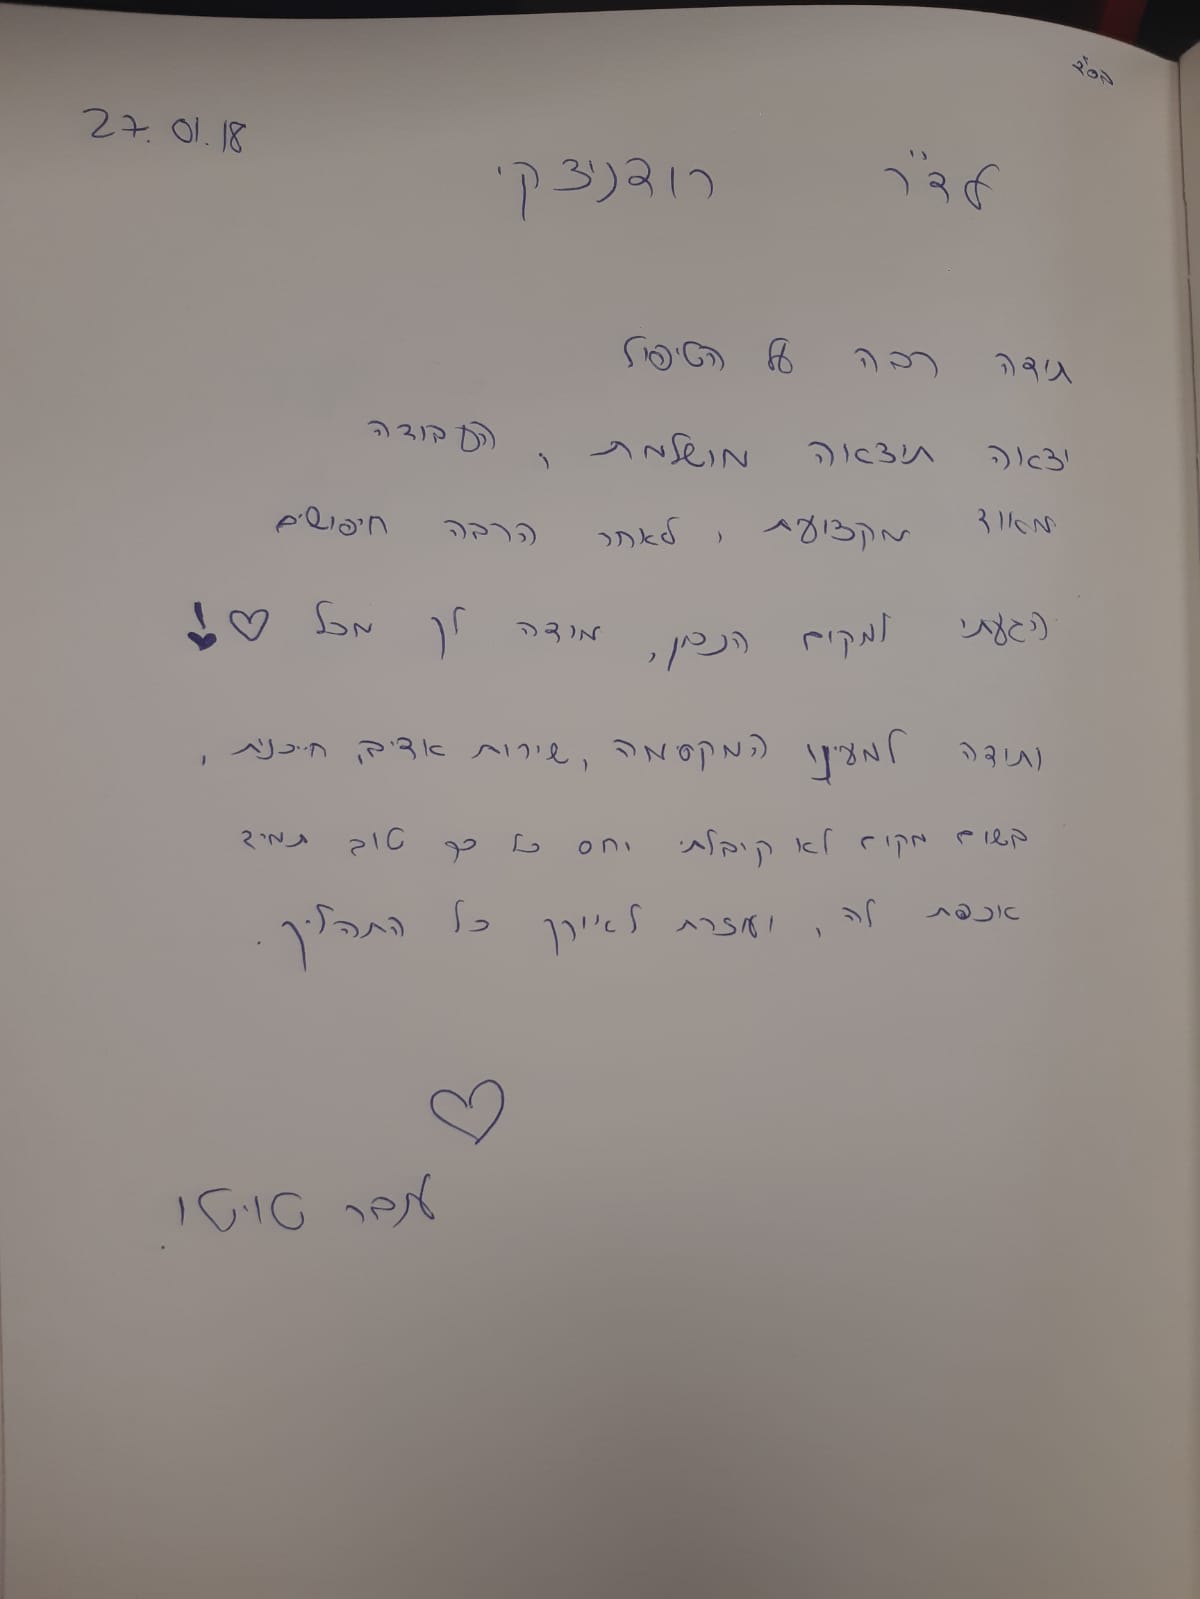 בס"ד
27.01.18
לד"ר רודניצקי
תודה רבה על הטיפול
יצאה תוצאה מושלמת, העבודה
מאוד מקצועת, לאחר הרבה חיפושים
הגעתי למקום הנכון, מודה לך מכל ♡!
ותודה למעינו המקסמה, שירות אדיב, חייכנית,
בשום מקום לא קיבלתי יחס כל כך טוב תמיד
אכפת לה, ועוזרת לאיורך כל התהליך.
♡
ענבר טויטו.